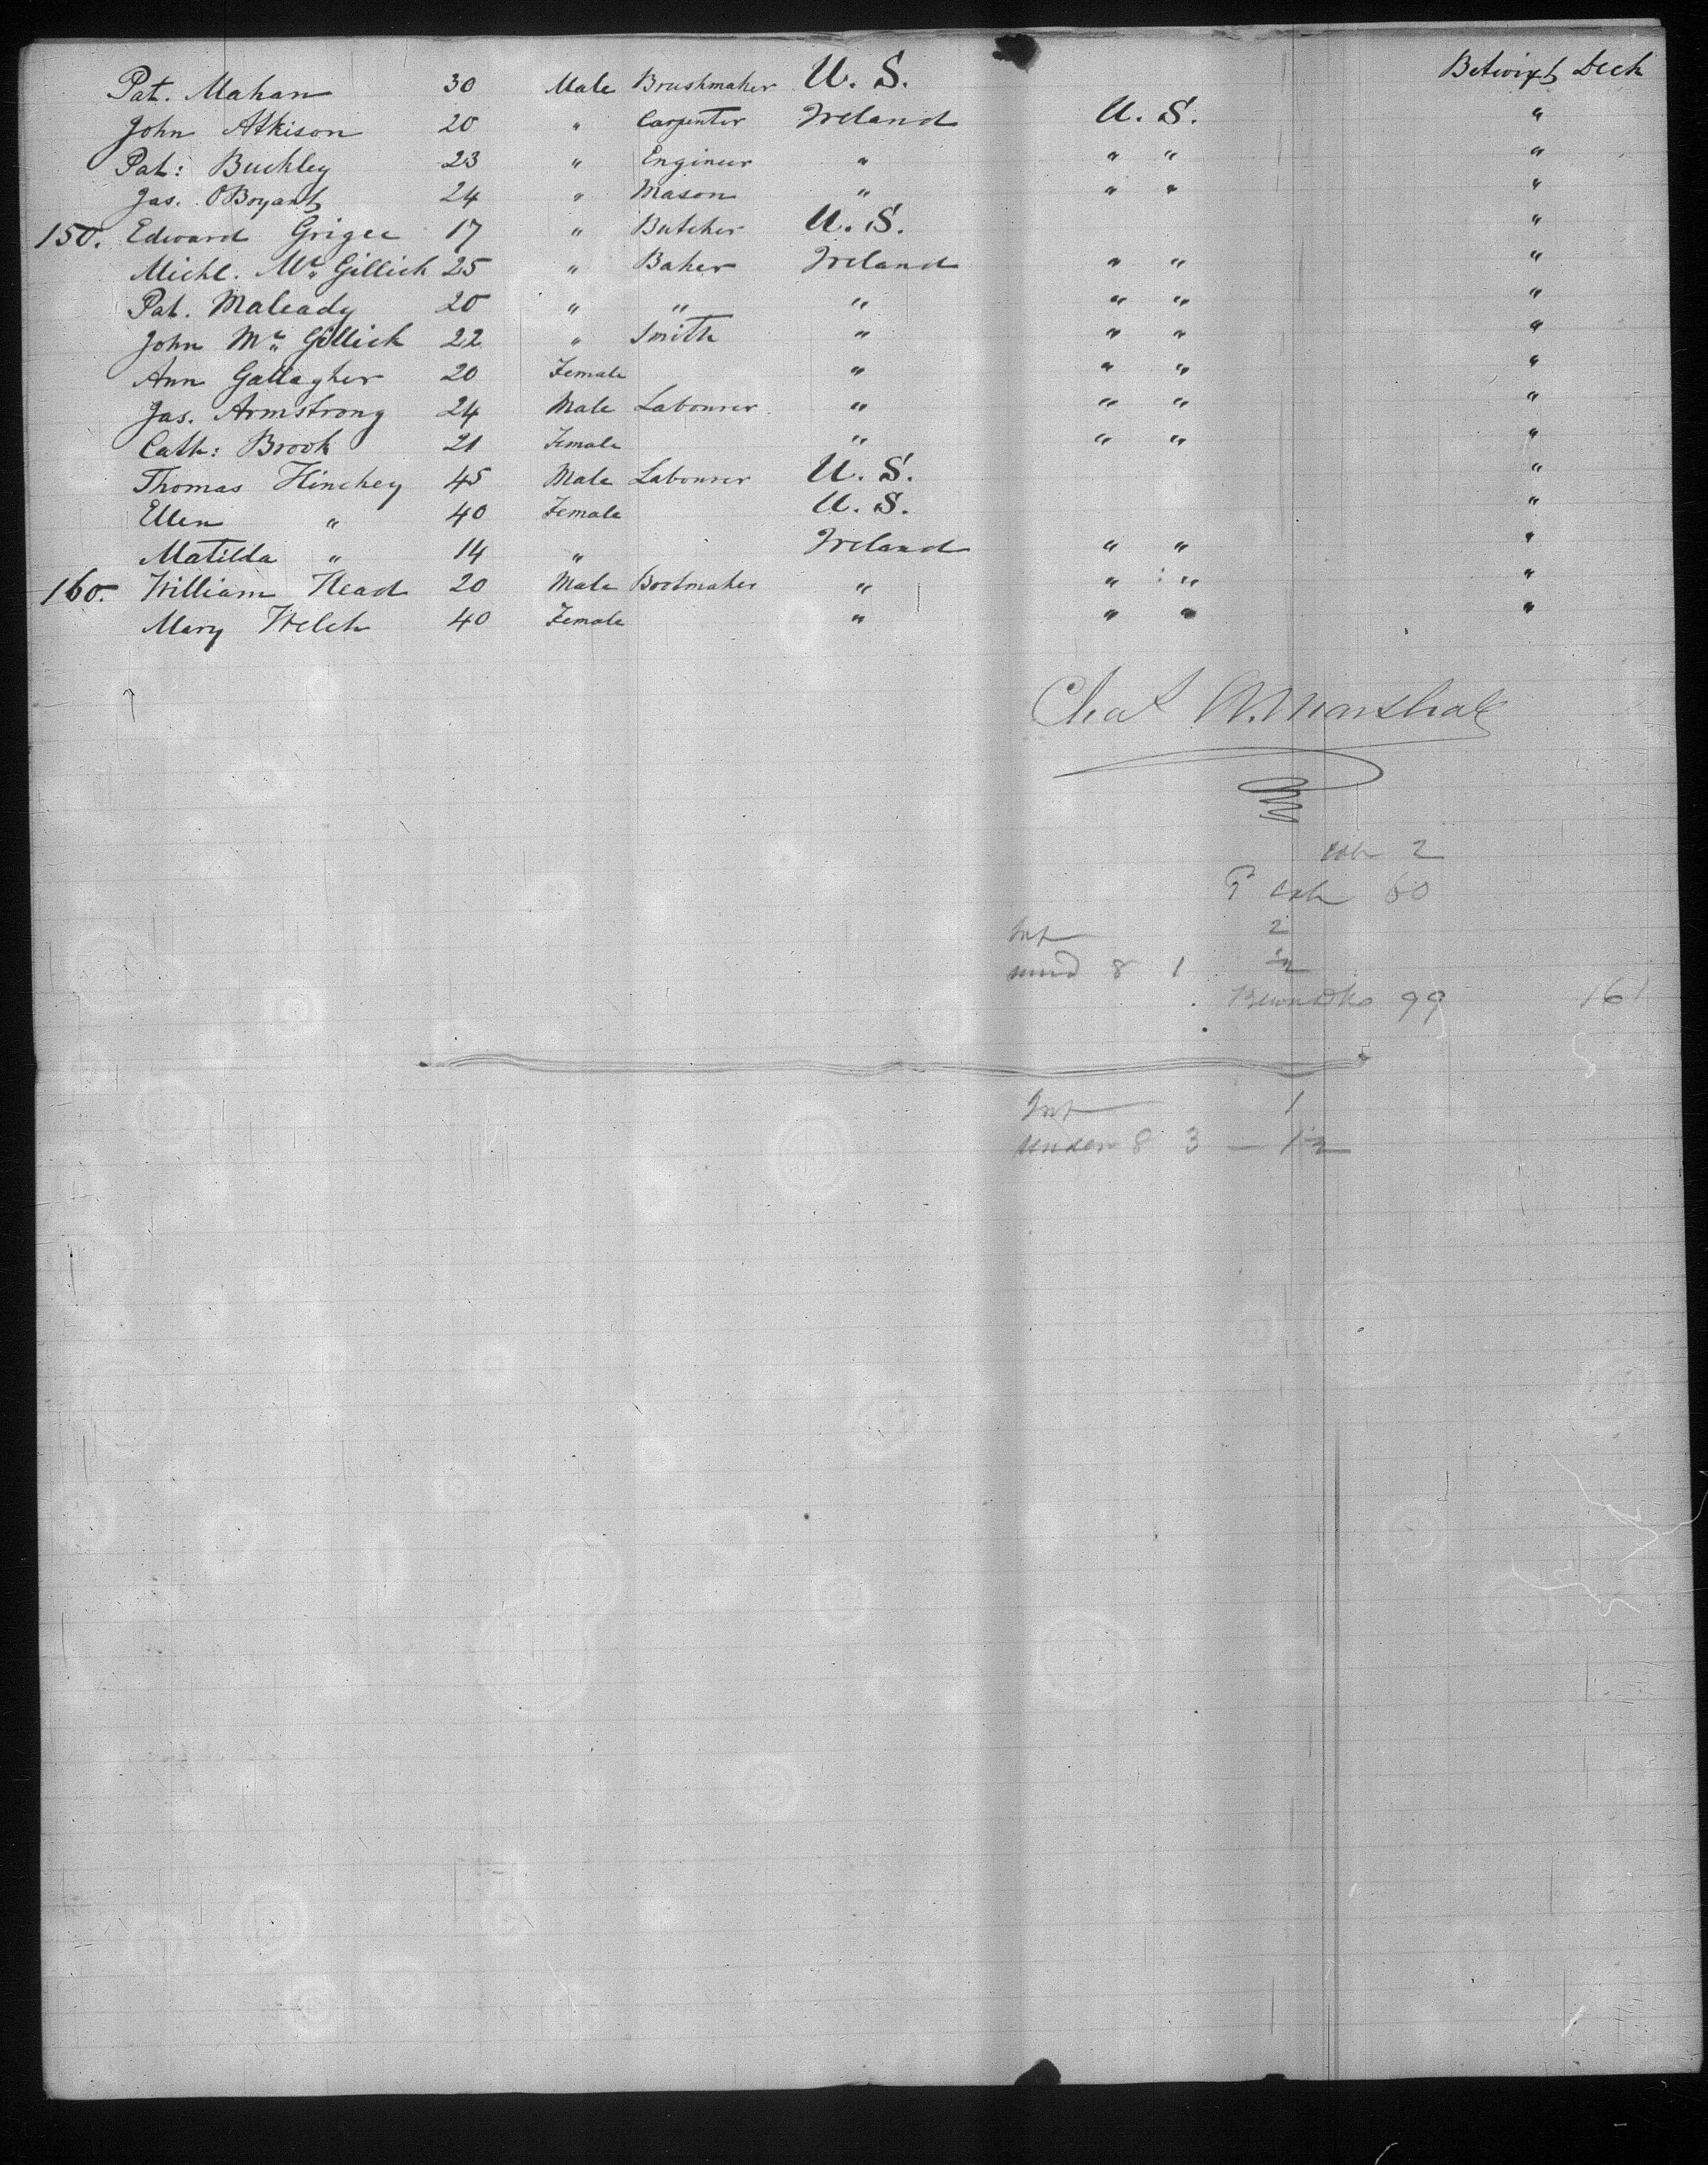 Pat. Mahan 30 Male Brushmaker U. S. Betwixt Deck
John Atkison 20 " Carpenter Ireland U. S. "
Pat: Buckley 23 " Engineer " " " "
Jas. OBoyant 24 " Mason " " " "
150. Edward Grigec 17 " Butcher U. S. "
Michl. Mc Gillick 25 " Baker Ireland " " "
Pat. Maleady 20 " " " " " "
John Mc Gillick 22 " Smith " " " "
Ann Gallagher 20 Female " " " "
Jas. Armstrong 24 Male Labourer " " " "
Cath: Brook 21 Female " " " "
Thomas Hinchey 45 Male Labourer U. S. "
Ellen " 40 Female U. S. "
Matilda " 14 " Ireland " " "
160. William Head 20 Male Bootmaker " " " "
Mary Welch 40 Female " " " "
Chas A. Marshall
Cab 2
2 Cab 60
Inf 2
und 8 1
99 161
Inf 1
under 8 3 — 1